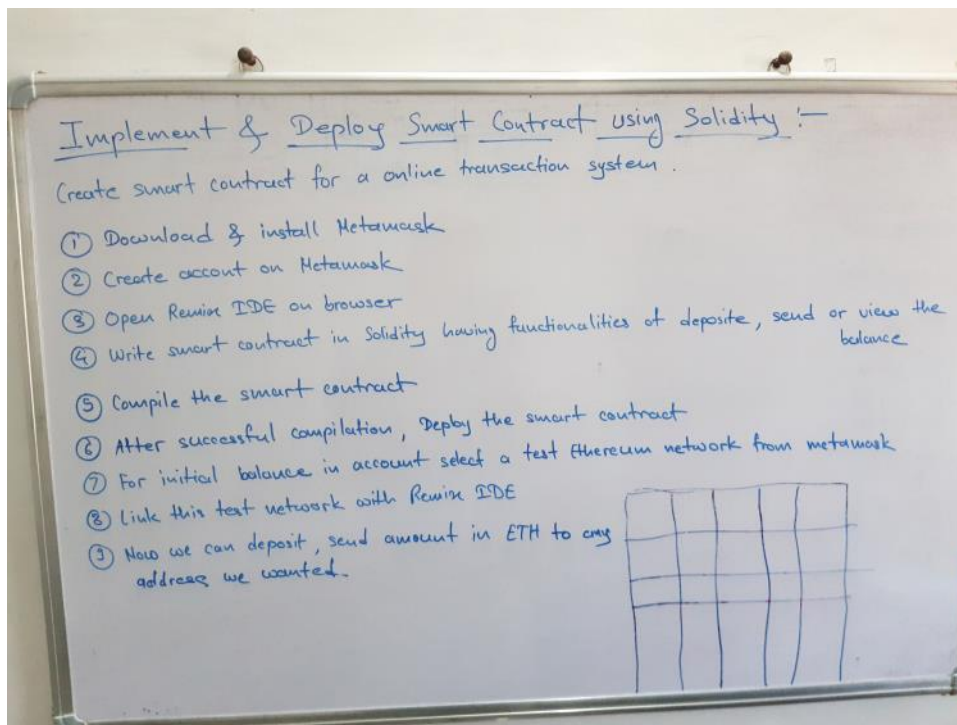 Implement & Deploy Smart Contract using Solidity :-
Create smart contract for a online transaction system .
① Download & install Metamask
② Create accout on Metamask
③ Open Remix IDE on browser
④ Write smart contract in Solidity having functionalities of deposite, send or view the
balance
⑤ Compile the smart contract
⑥ After successful compilation, Deploy the smart contract
⑦ For initial balance in account select a test Ethereum network from metamask
⑧ Link this test network with Remix IDE
⑨ Now we can deposit, send amount in ETH to any
address we wanted.